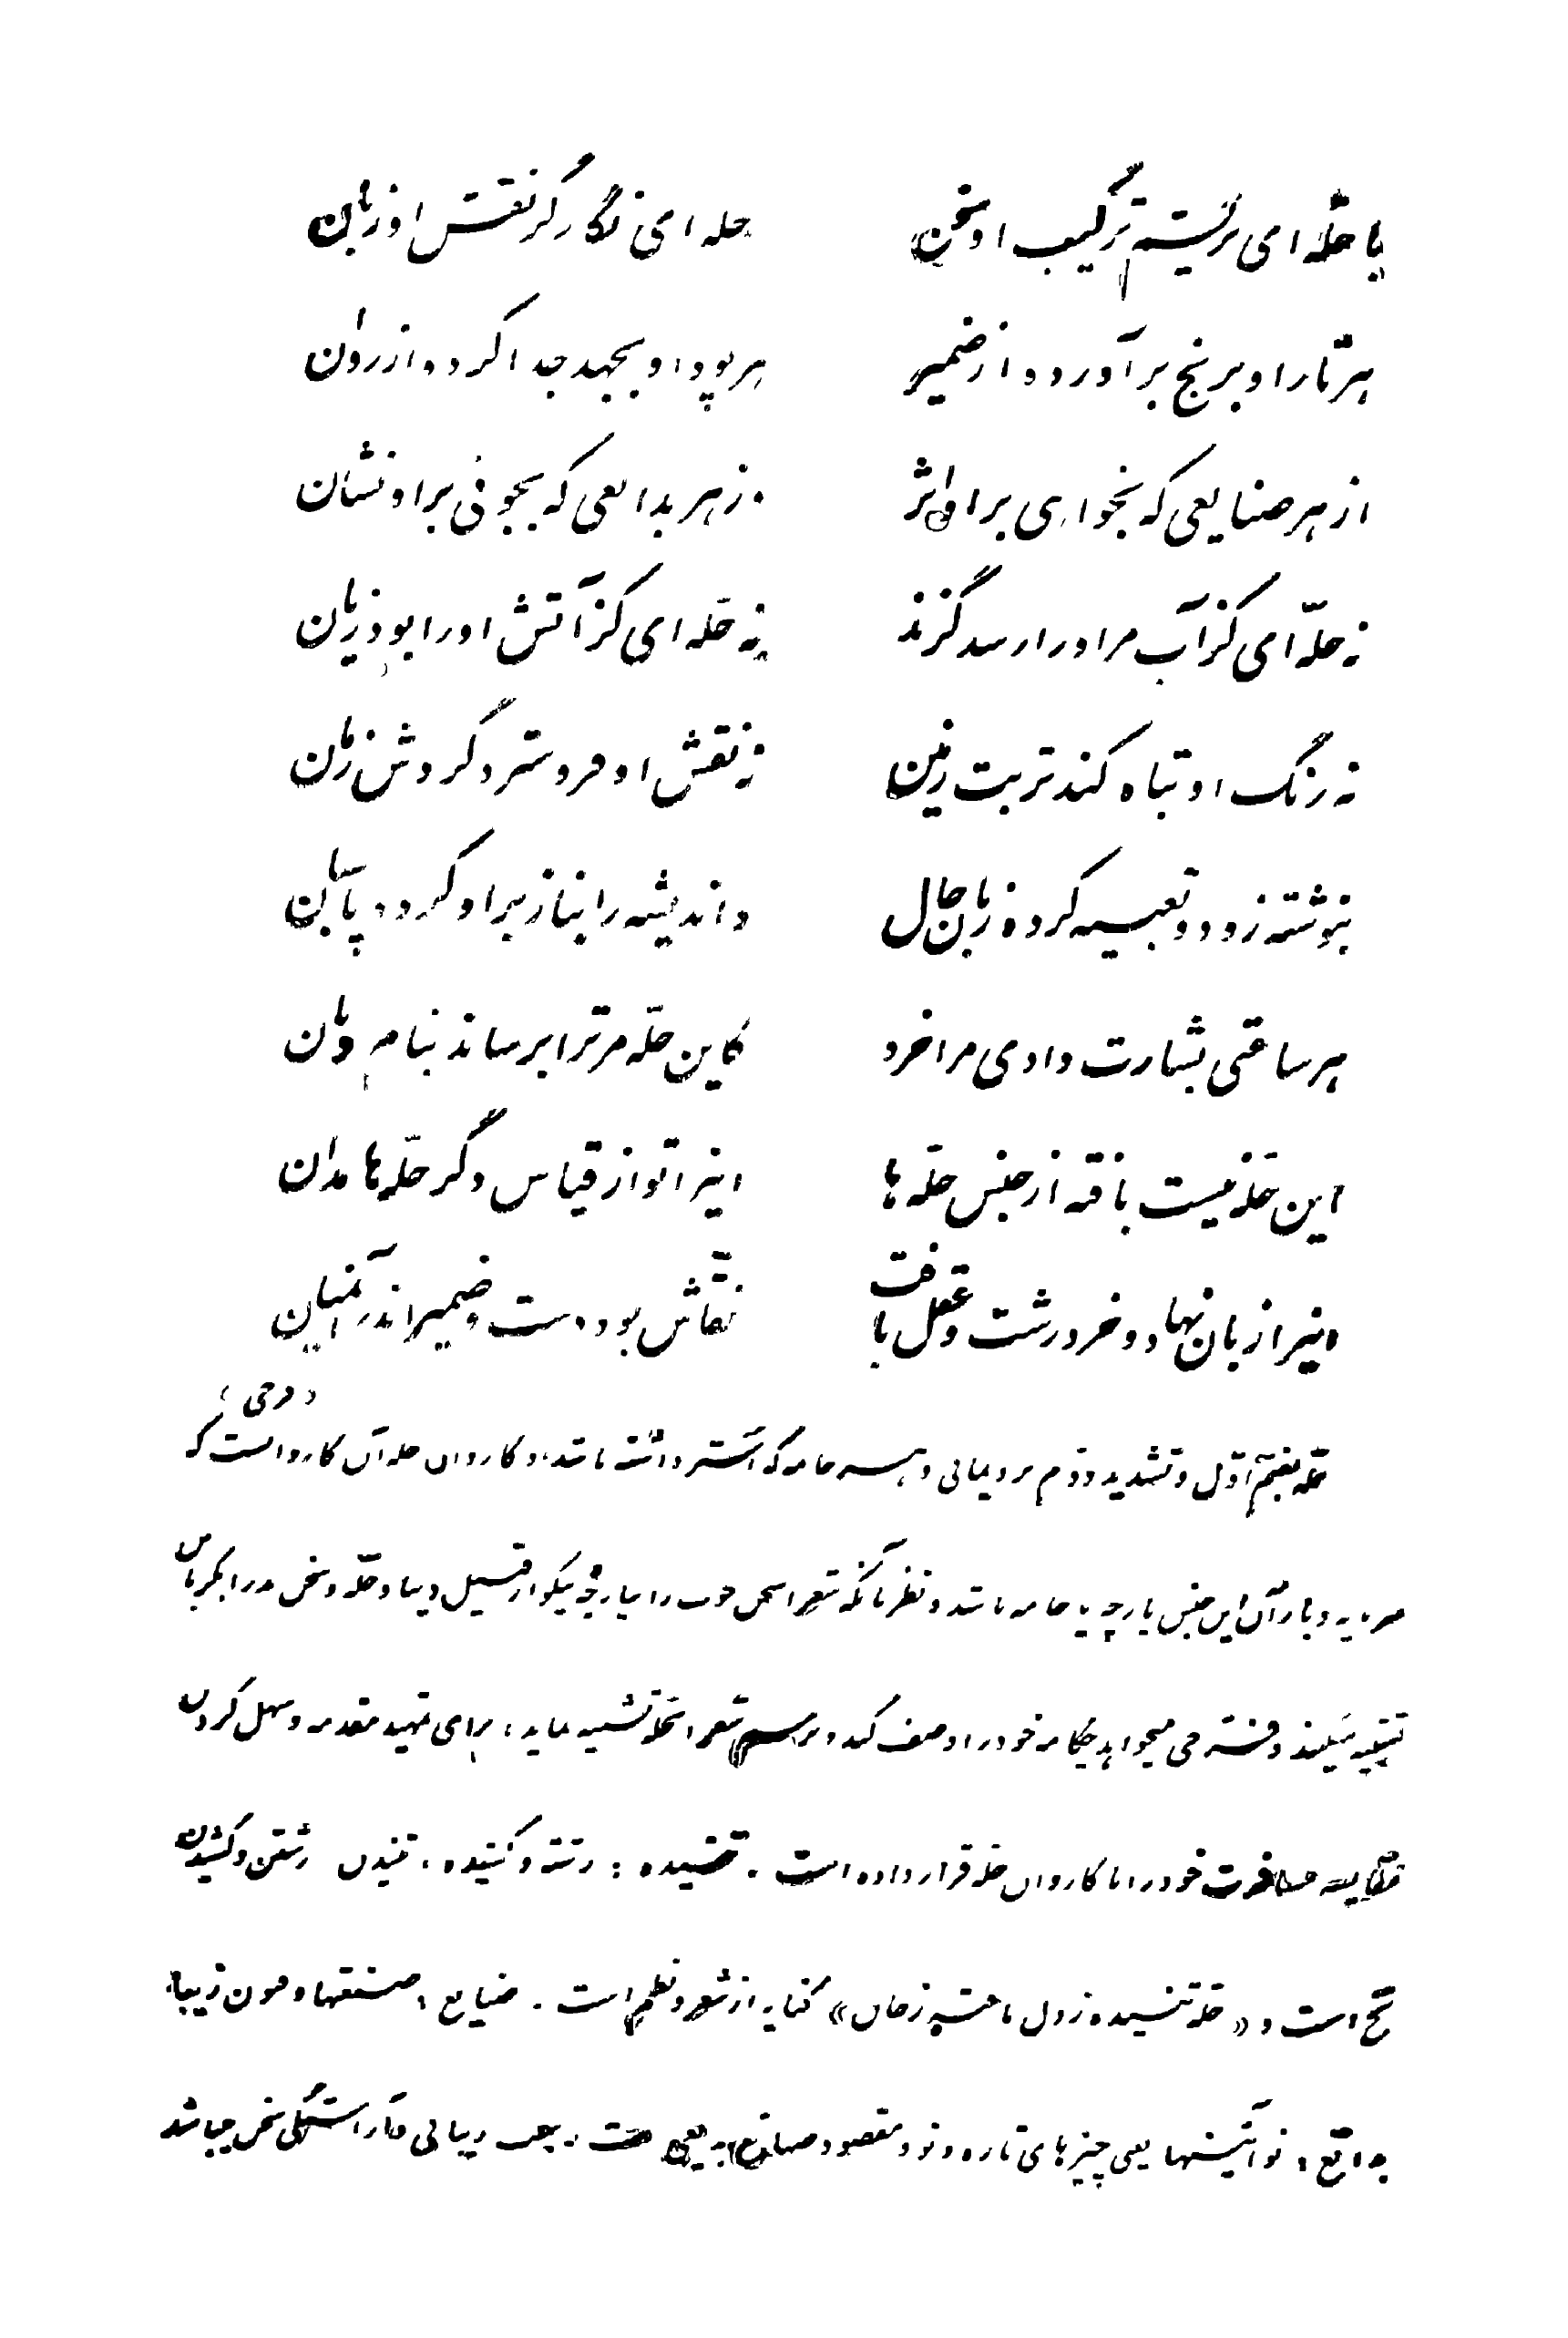 با حله‌ای بریشم ترکیب او سخن حله‌ای نگارگر نقش او زبان
هر تار او برنج برآورده از ضمیر هر پود او بجهد جدا کرده از روان
از هر صنایعی که بخواهی بر او اثر وز هر بدایعی که بجوئی بر او نشان
نه حلّه‌ای کز آب مر او را رسد گزند نه حلّه‌ای کز آتش او را بود زیان
نه رنگ او تباه کند تربت زمین نه نقش او فرو سترد گردش زمان
بنوشته زود و تعبیه کرده زبان حال و اندیشه را بناز بر او کرده پاسبان
هر ساعتی بشارت دادی مرا خرد کاین حلّه مر ترا برساند بنام و نان
این حلّه نیست بافته از جنس حلّه‌ها اینرا تو از قیاس دگر حلّه‌ها مدان
اینرا زبان نهاد و خرد رشت و عقل بافت نقّاش بود دست و ضمیر اندر آن میان
(فرخی)
حلّه بضمّ اوّل و تشدید دوّم برد یمانی و هر جامه که آستر داشته باشد، و کاروان حله آن کاروانست که
سرمایه و بار آن این جنس پارچه یا جامه باشد و نظر بآنکه شعرا سخن خوب را بپارچهٔ نیکو از قبیل دیبا و حلّه و سخن بد را بکرباس
تشبیه میکنند و فرخی میخواهد چکامه خود را وصف کند و برسم شعرا بحلّه تشبیه نماید، برای تمهید مقدمه و سهل کردن
مقایسه مسافرت خود را با کاروان حله قرار داده است. تنیده: رشته و کشیده، تنیدن رشتن و کشیدن
نخ است و «حله تنیده ز دل بافته ز جان» کنایه از شعر و نظم است. صنایع: صنعتها و فنون زیبا.
بدایع: نوآئینها یعنی چیزهای تازه و نو و مقصود صنایع بدیعی است. یعنی زیبائی و آراستگی سخن میباشد